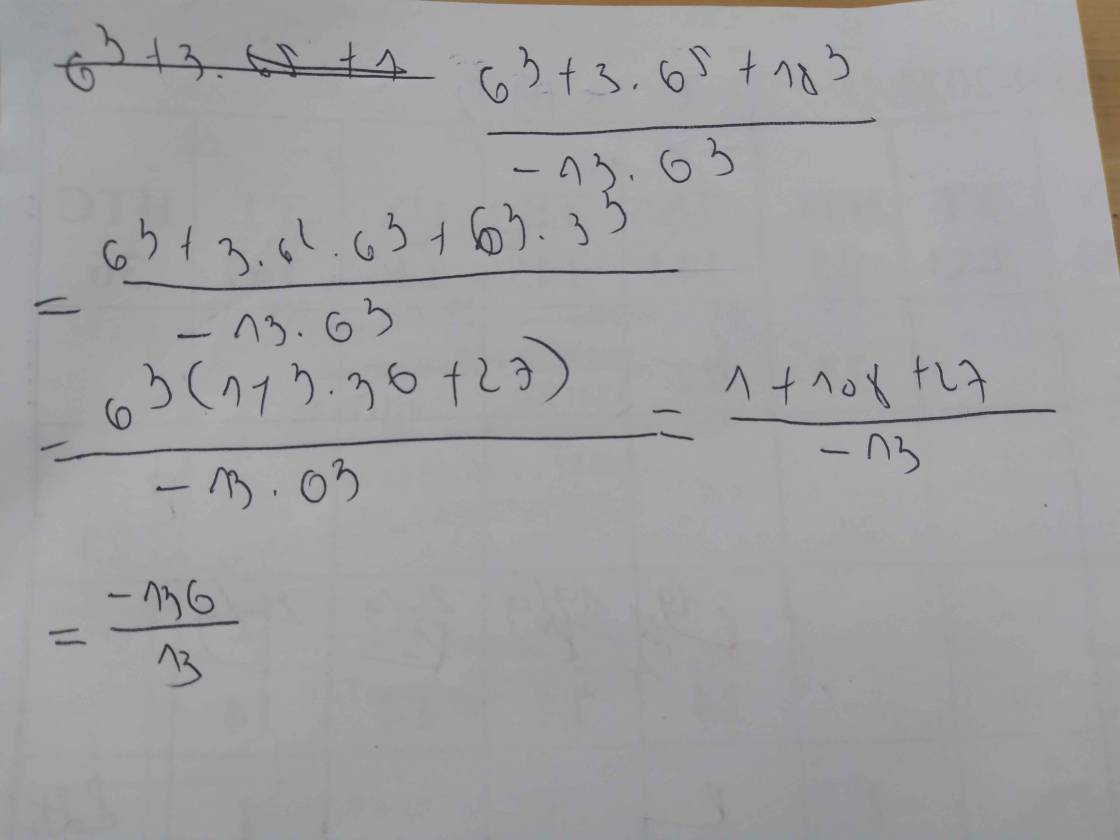 6³ + 3 . 6⁵ + 1
6³ + 3 . 6⁵ + 18³
- 13 . 6³
= 6³ + 3 . 6² . 6³ + 6³ . 3³
- 13 . 6³
= 6³ (1 + 3 . 36 + 27) = 1 + 108 + 27
- 13 . 6³ - 13
= -136
13